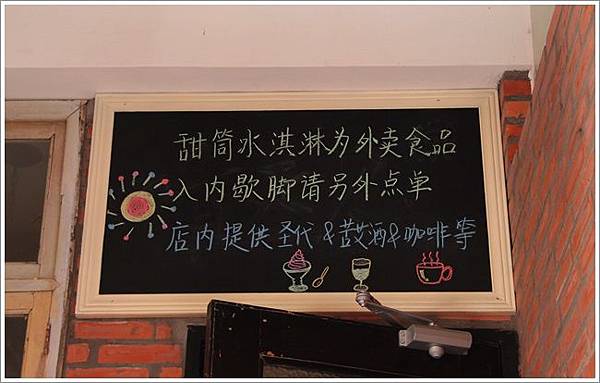 甜筒冰淇淋为外卖食品
入内歇脚请另外点单
店内提供圣代&鼓酒&咖啡等